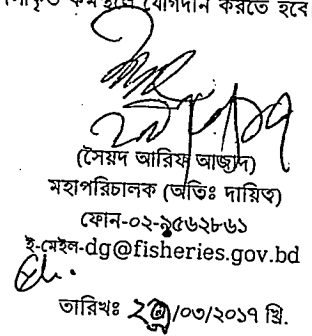 কর্মস্থলে যোগদান করতে হবে।
(সৈয়দ আরিফ আজাদ)
মহাপরিচালক (অতিঃ দায়িত্ব)
ফোন-০২-৯৫৬২৮৬১
ই-মেইল-dg@fisheries.gov.bd
তারিখঃ /০৩/২০১৭ খ্রি.